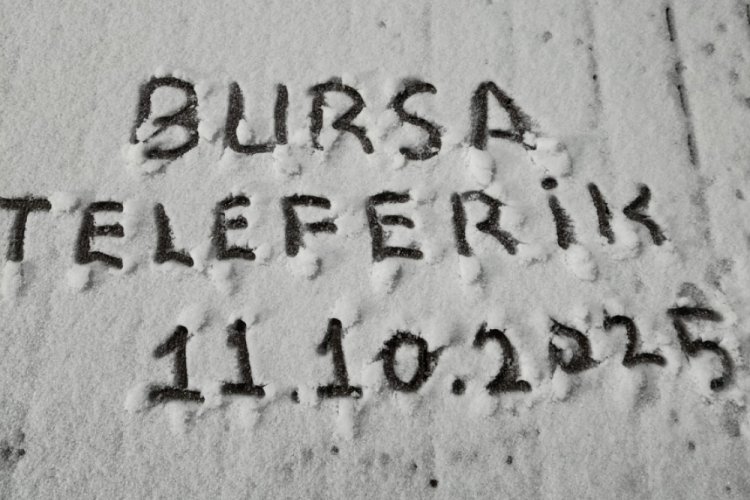 BURSA
TELEFERiK
11.10.2025